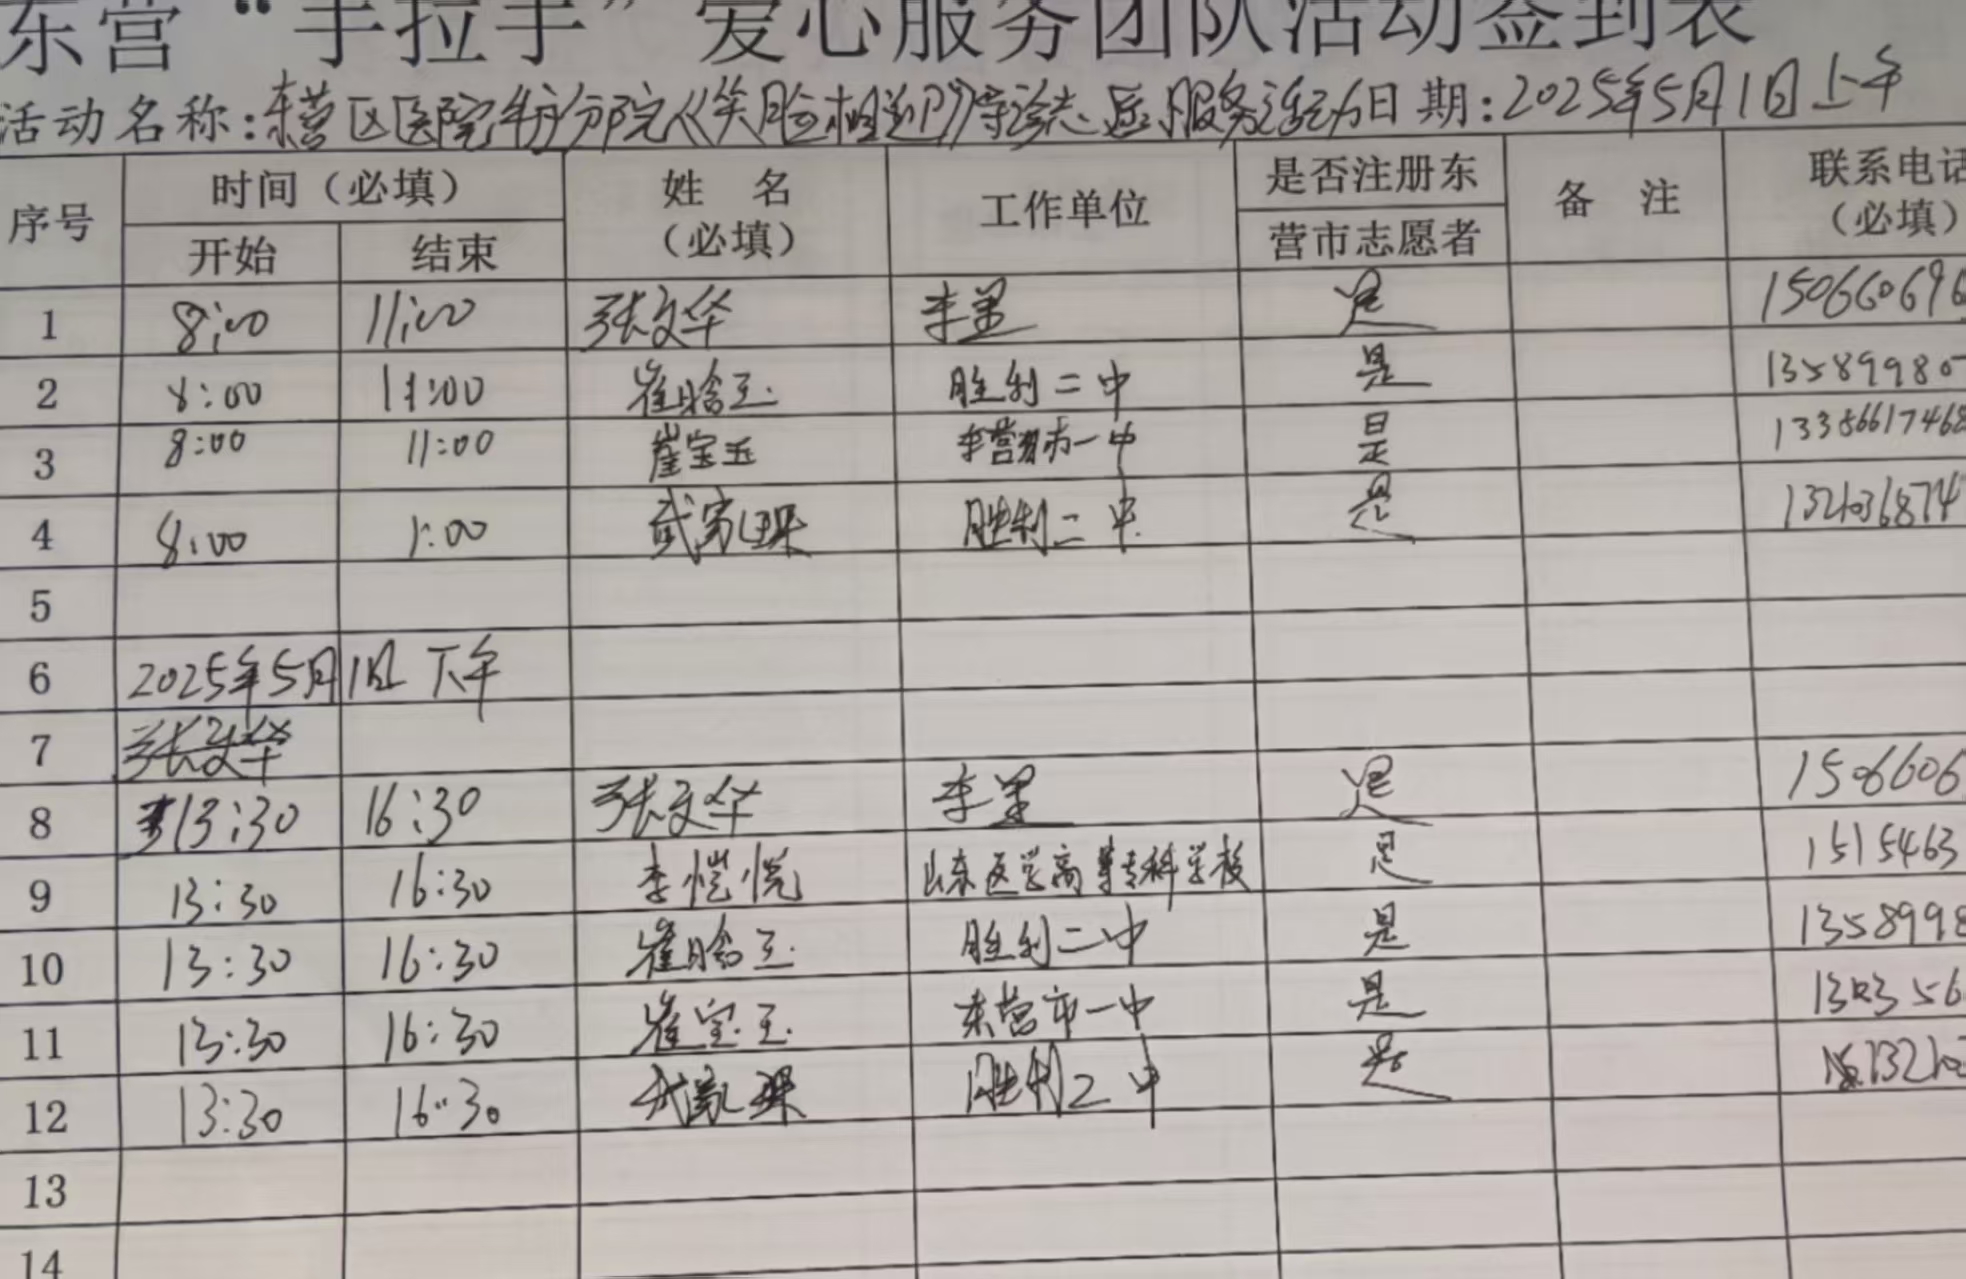 东营“手拉手”爱心服务团队活动签到表
活动名称:东营区医院 分院《笑脸相迎》导诊志愿服务活动 日期:2025年5月1日上午
序号 时间（必填） 姓 名（必填） 工作单位 是否注册东营市志愿者 备 注 联系电话（必填）
开始 结束
1 8:00 11:00 张文华 是 150660696
2 8:00 11:00 崔晗玉 胜利二中 是 135899980
3 8:00 11:00 崔宝玉 东营市一中 是 13356617468
4 8:00 1:00 武家 胜利二中 是 1321036874
5
6 2025年5月1日 下午
7 张文华
8 13:30 16:30 张文华 是 1506606
9 13:30 16:30 李恺悦 山东医学高等专科学校 是 1515463
10 13:30 16:30 崔晗玉 胜利二中 是 1358998
11 13:30 16:30 崔宝玉 东营市一中 是
12 13:30 16:30 武家 胜利二中 是
13
14